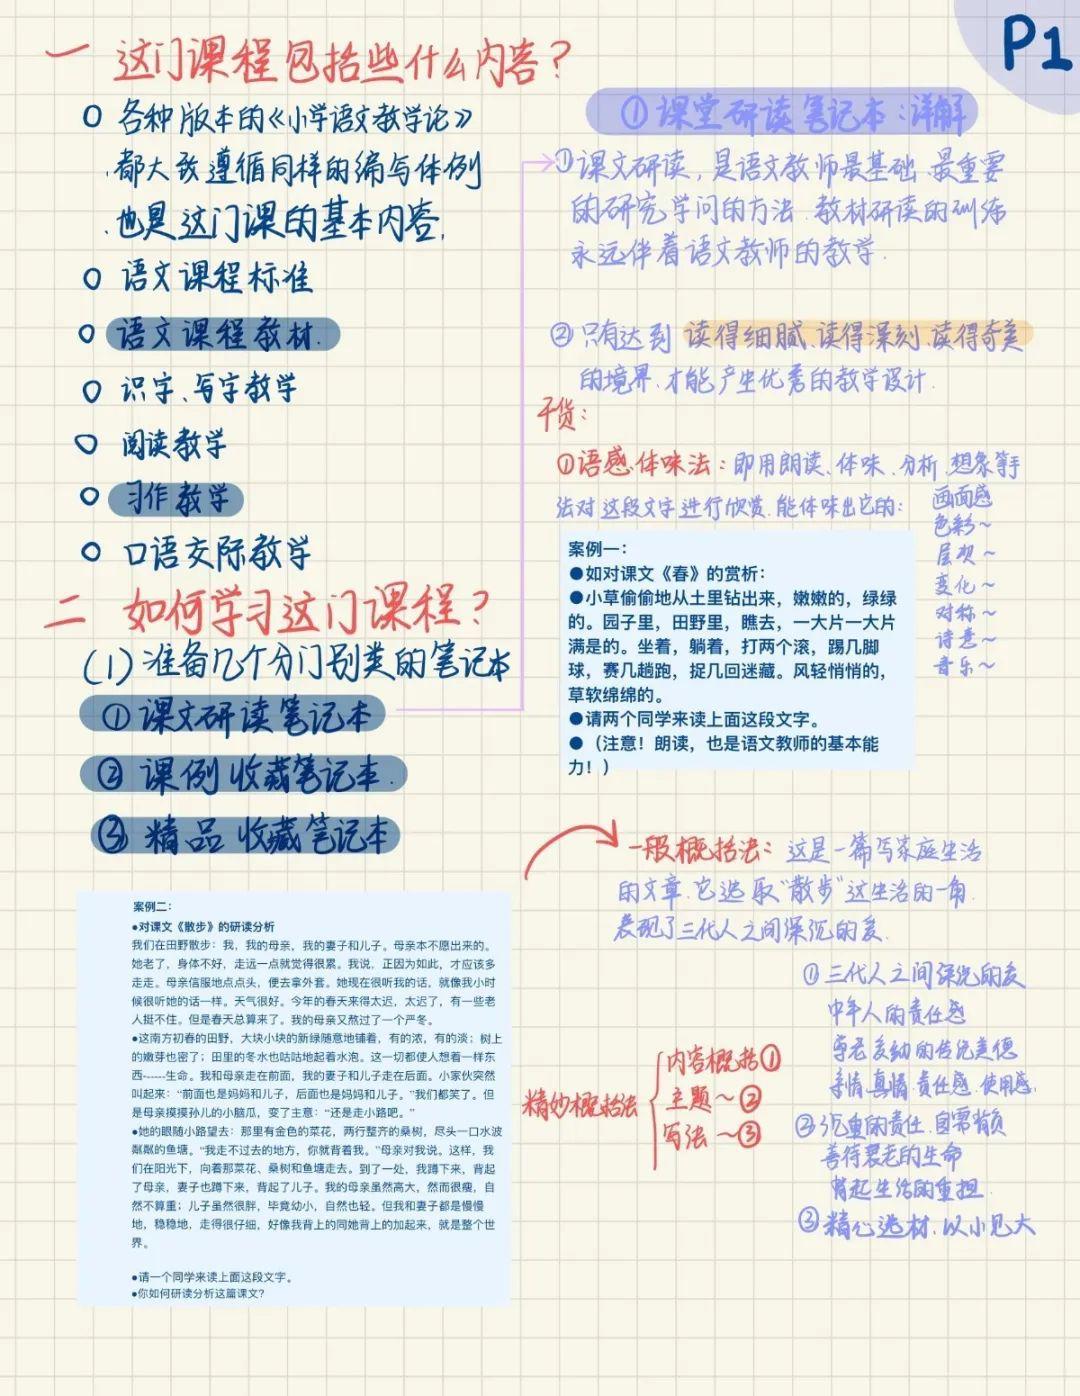 P1
一 这门课程包括些什么内容？
各种版本的《小学语文教学论》
都大致遵循同样的编写体例
也是这门课的基本内容,
语文课程标准
语文课程教材.
识字、写字教学
阅读教学
习作教学
口语交际教学
二 如何学习这门课程？
(1) 准备几个分门别类的笔记本
① 课文研读笔记本
② 课例收藏笔记本.
③ 精品收藏笔记本
案例二：
●对课文《散步》的研读分析
我们在田野散步：我，我的母亲，我的妻子和儿子。母亲本不愿出来的。
她老了，身体不好，走远一点就觉得很累。我说，正因为如此，才应该多
走走。母亲信服地点点头，便去拿外套。她现在很听我的话，就像我小时
候很听她的话一样。天气很好。今年的春天来得太迟，太迟了，有一些老
人挺不住。但是春天总算来了。我的母亲又熬过了一个严冬。
●这南方初春的田野，大块小块的新绿随意地铺着，有的浓，有的淡；树上
的嫩芽也密了；田里的冬水也咕咕地起着水泡。这一切都使人想着一样东
西------生命。我和母亲走在前面，我的妻子和儿子走在后面。小家伙突然
叫起来：“前面也是妈妈和儿子，后面也是妈妈和儿子。”我们都笑了。但
是母亲摸摸孙儿的小脑瓜，变了主意：“还是走小路吧。”
●她的眼随小路望去：那里有金色的菜花，两行整齐的桑树，尽头一口水波
粼粼的鱼塘。“我走不过去的地方，你就背着我。”母亲对我说。这样，我
们在阳光下，向着那菜花、桑树和鱼塘走去。到了一处，我蹲下来，背起
了母亲，妻子也蹲下来，背起了儿子。我的母亲虽然高大，然而很瘦，自
然不算重；儿子虽然很胖，毕竟幼小，自然也轻。但我和妻子都是慢慢
地，稳稳地，走得很仔细，好像我背上的同她背上的加起来，就是整个世
界。
●请一个同学来读上面这段文字。
●你如何研读分析这篇课文？
① 课堂研读笔记本：详解
① 课文研读，是语文教师最基础、最重要
的研究学问的方法.教材研读的训练
永远伴着语文教师的教学.
② 只有达到 读得细腻、读得深刻、读得奇美
的境界、才能产生优秀的教学设计.
干货：
①语感体味法：即用朗读、体味、分析、想象等手
法对这段文字进行欣赏.能体味出它的：
画面感
色彩~
层次~
变化~
对称~
诗意~
音乐~
案例一：
●如对课文《春》的赏析：
●小草偷偷地从土里钻出来，嫩嫩的，绿绿
的。园子里，田野里，瞧去，一大片一大片
满是的。坐着，躺着，打两个滚，踢几脚
球，赛几趟跑，捉几回迷藏。风轻悄悄的，
草软绵绵的。
●请两个同学来读上面这段文字。
●（注意！朗读，也是语文教师的基本能
力！）
一般概括法：这是一篇写家庭生活
的文章.它选取“散步”这生活的一角.
表现了三代人之间深沉的爱.
精妙概括法
内容概括①
主题~②
写法~③
① 三代人之间深沉的爱
中年人的责任感
尊老爱幼的传统美德
亲情.真情.责任感.使用感.
② 沉重的责任.自需肯负
善待衰老的生命
背起生活的重担.
③ 精心选材.以小见大